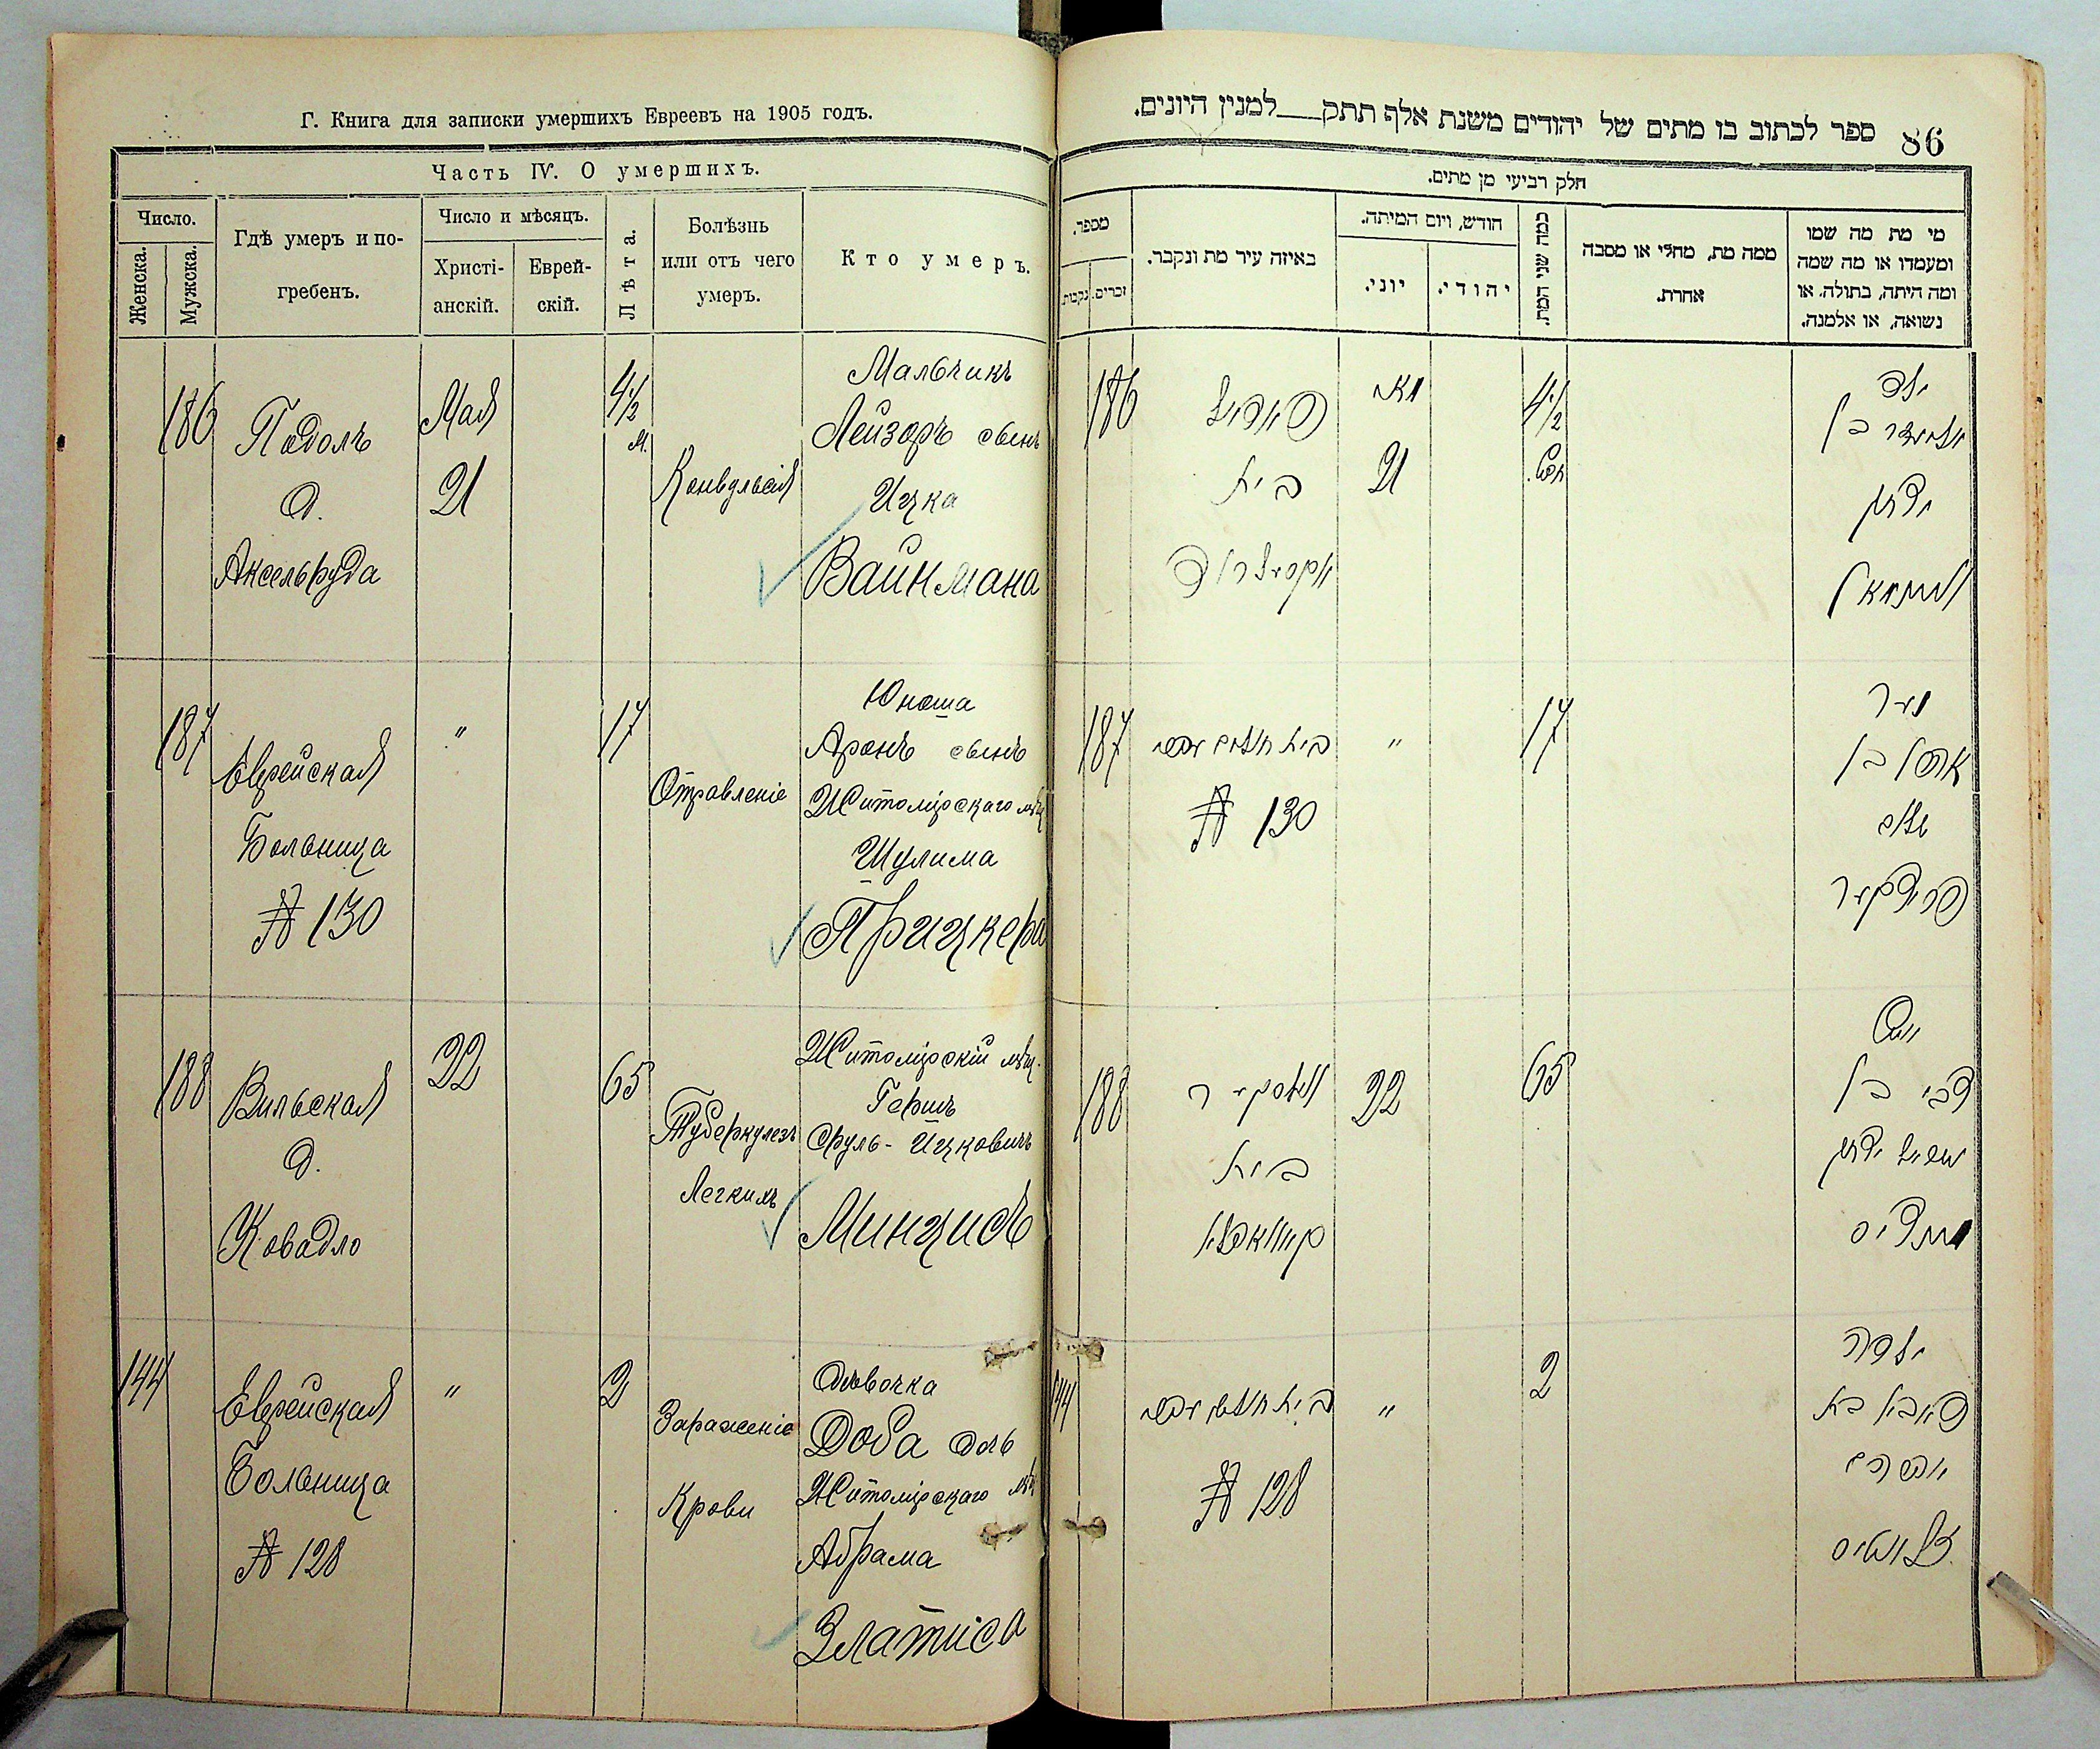 Г. Книга для записки умершихъ Евреевъ на 1905 годъ.
Часть IV. О умершихъ.
Число.
Женска.
Мужска.
Гдѣ умеръ и по-
гребенъ.
Число и мѣсяцъ.
Христі-
анскій.
Еврей-
скій.
Лѣта.
Болѣзнь
или отъ чего
умеръ.
Кто умеръ.
186
Подолъ
д.
Аксельруда
Мая
21
4½
м.
Конвульсія
Мальчикъ
Лейзоръ сынъ
Ицка
Вайнмана
187
Еврейская
Больница
№ 130
"
17
Отравленіе
Юноша
Аронъ сынъ
Житомірскаго мѣщ
Шулима
Прицкера
188
Вильская
д.
Ковадло
22
65
Туберкулезъ
Легкихъ
Житомірскій мѣщ.
Гершъ
Сруль-Ицковичъ
Минцисъ
144
Еврейская
Больница
№ 128
"
2
Зараженіе
Крови
Дѣвочка
Доба дочь
Житомірскаго мѣщ
Абрама
Златиса
86
ספר לכתוב בו מתים של יהודים משנת אלף תתק___למנין היונים.
חלק רביעי מן מתים.
מספר.
נקבות.
זכרים.
באיזה עיר מת ונקבר.
חודש, ויום המיתה.
יוני.
יהודי.
כמה שני המת.
ממה מת, מחלי או מסבה
אחרת.
מי מת מה שמו
ומעמדו או מה שמה
ומה היתה, בתולה, או
נשואה, או אלמנה.
186
פאדאל
בית
אקסעלראד
מאי
21
4½
חדש.
ילד
אליעזר בן
יצחק
וויינמאן
187
№ 130
"
17
נער
אהרן בן
שלום
פריצקער
188
ווילסקער
בית
קאוואדלא
22
65
איש
צבי בן
ישראל יצחק
מינציס
144
№ 128
"
2
ילדה
בת
אברהם
זלאטיס